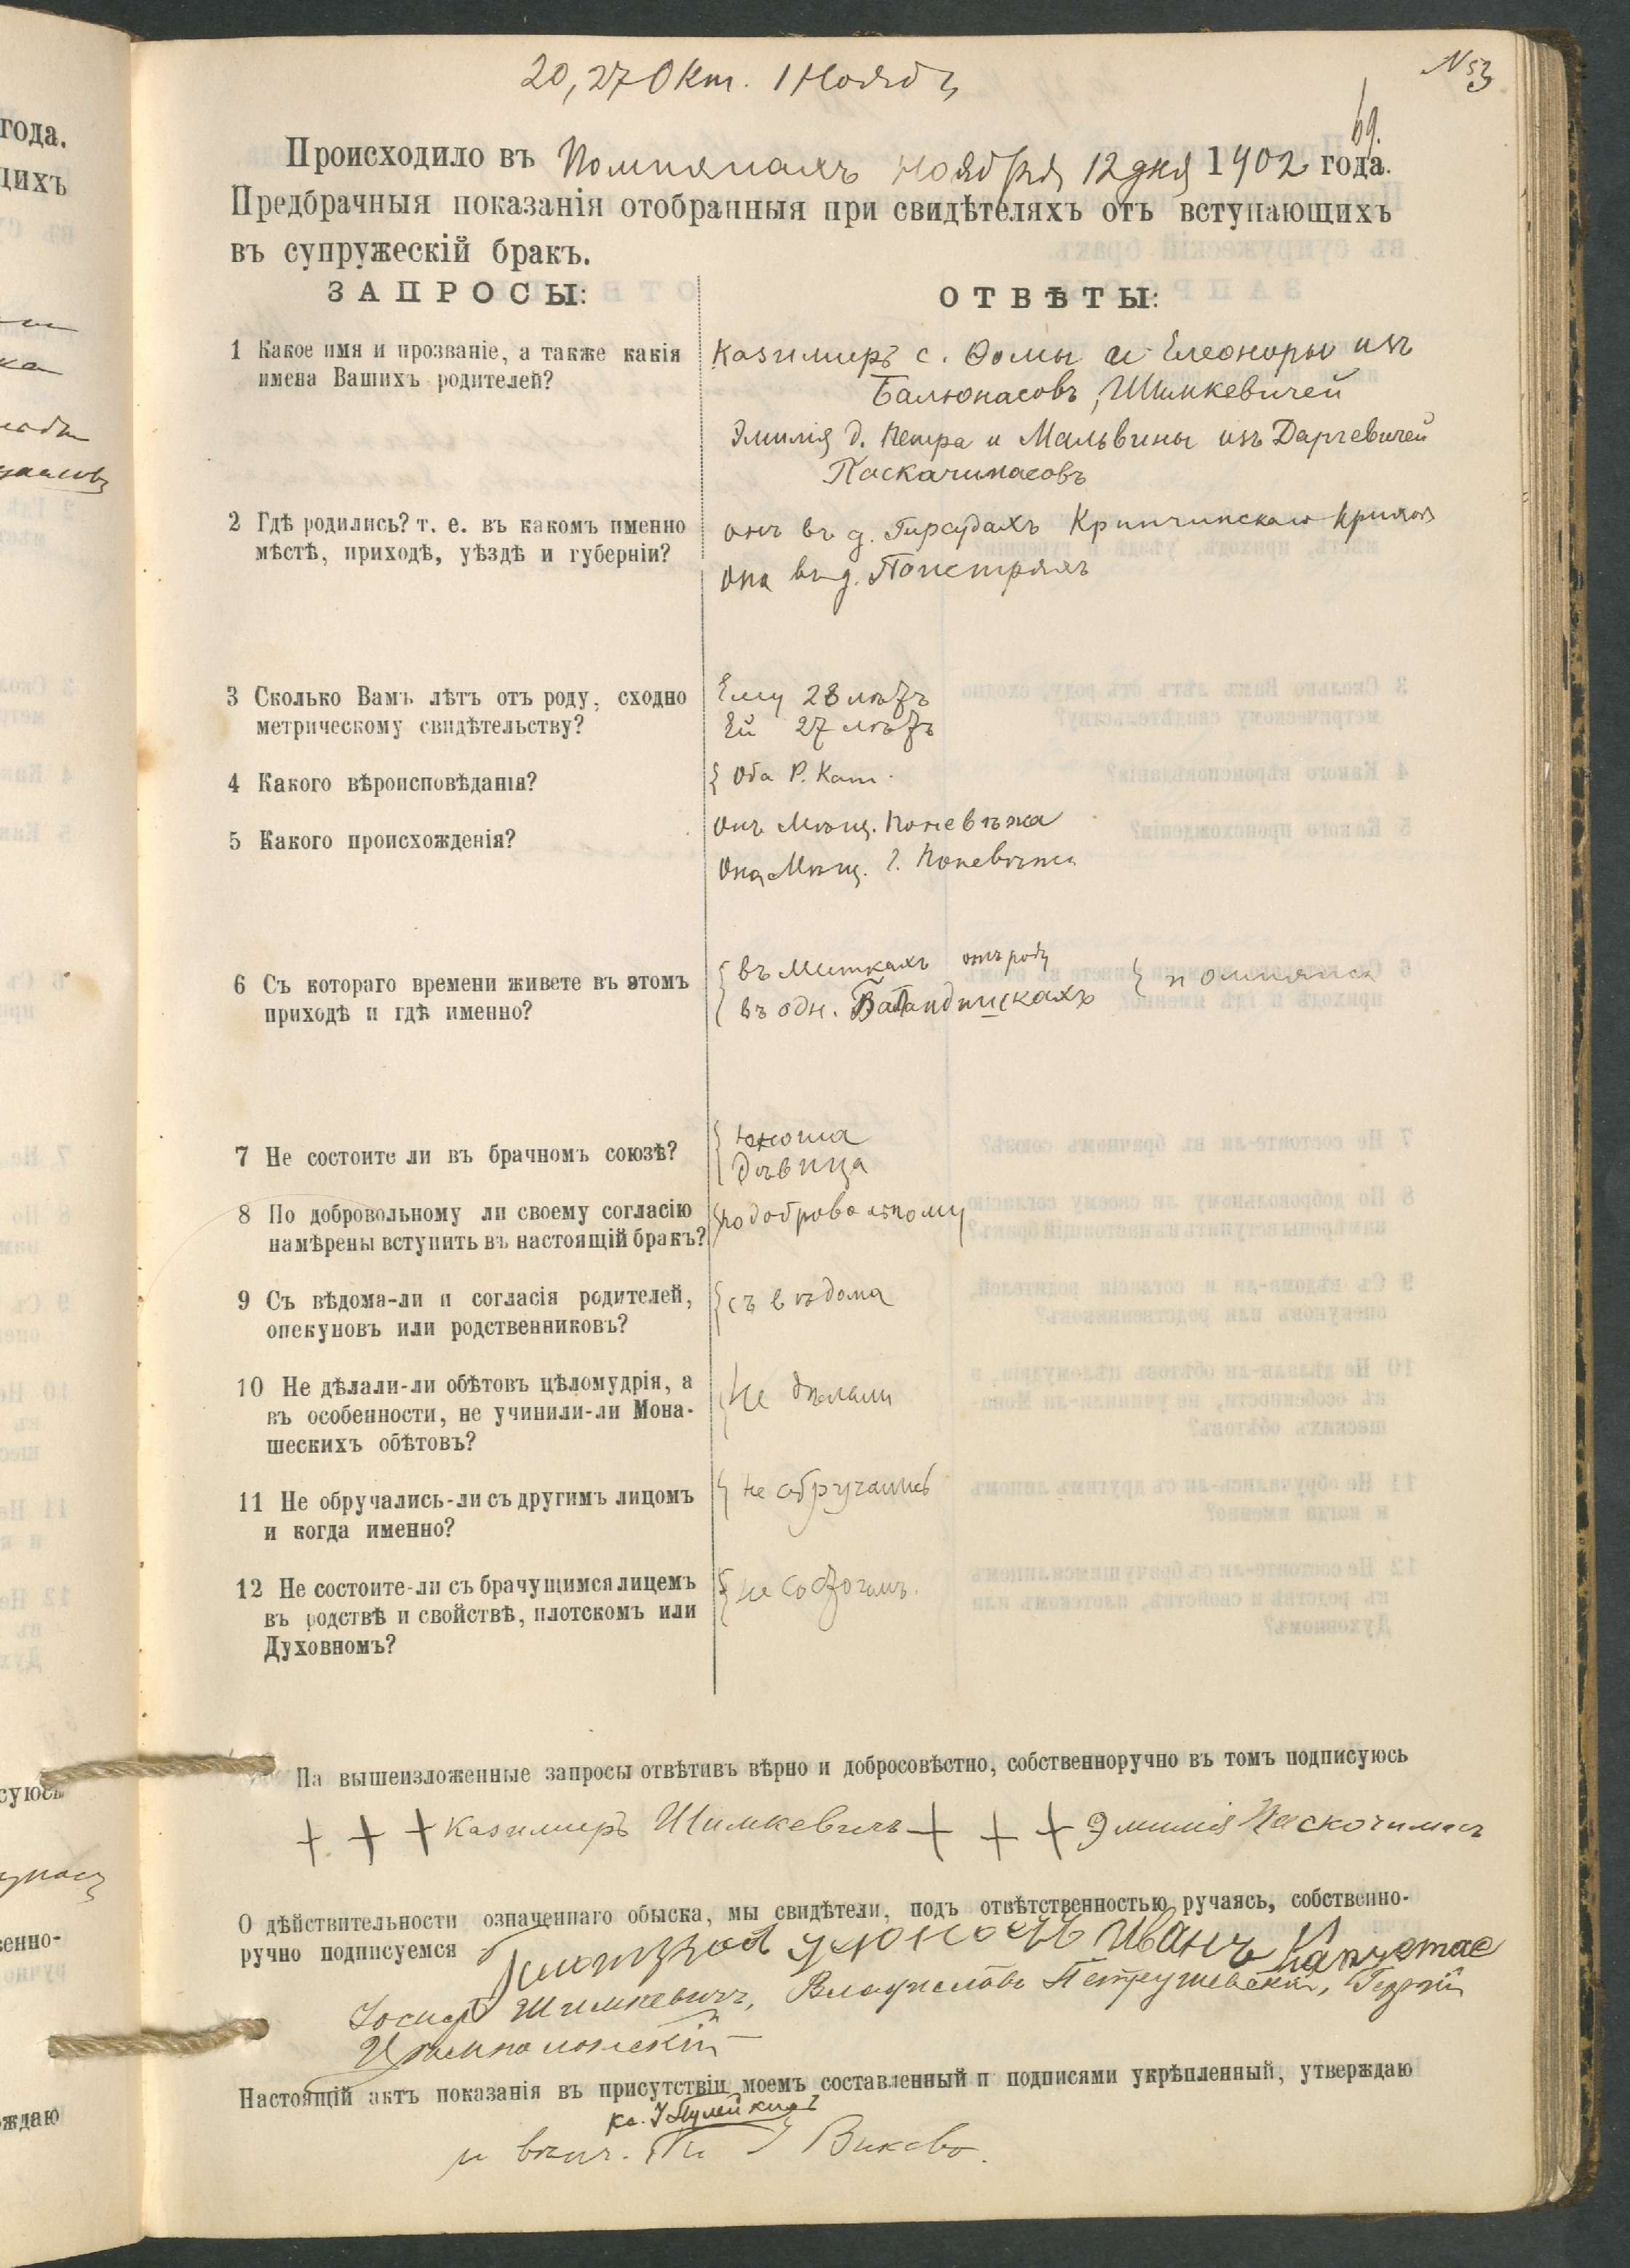 20, 27 Окт. 1 Нояб
№ 53
69.
Происходило въ Помпянахъ ноября 12 дня 1902 года.
Предбрачныя показанія отобранныя при свидѣтеляхъ отъ вступающихъ
въ супружескій бракъ.
ЗАПРОСЫ:
ОТВѢТЫ:
1 Какое имя и прозваніе, а также какія
имена Вашихъ родителей?
Казимиръ с. Ѳомы и Елеоноры изъ
Балюнасовъ, Шимкевичей
Эмилія д. Петра и Мальвины изъ Даргевичей
Паскачимасовъ
2 Гдѣ родились? т. е. въ какомъ именно
мѣстѣ, приходѣ, уѣздѣ и губерніи?
онъ въ д. Гирсудахъ Крипчинскаго прихода
Она въ д.
3 Сколько Вамъ лѣтъ отъ роду, сходно
метрическому свидѣтельству?
Ему 28 лѣтъ
Ей 27 лѣтъ
4 Какого вѣроисповѣданія?
Оба Р. Кат.
5 Какого происхожденія?
Онъ Мѣщ. Поневѣжа
Она Мѣщ. г. Поневѣжа
6 Съ котораго времени живете въ этомъ
приходѣ и гдѣ именно?
въ Миткахъ отъ роду
въ одн.
7 Не состоите ли въ брачномъ союзѣ?
Юноша
Дѣвица
8 По добровольному ли своему согласію
намѣрены вступить въ настоящій бракъ?
по добровольному
9 Съ вѣдома-ли и согласія родителей,
опекуновъ или родственниковъ?
съ вѣдома
10 Не дѣлали-ли обѣтовъ цѣломудрія, а
въ особенности, не учинили-ли Мона-
шескихъ обѣтовъ?
Не дѣлали
11 Не обручались-ли съ другимъ лицомъ
и когда именно?
не обручались
12 Не состоите-ли съ брачущимся лицемъ
въ родствѣ и свойствѣ, плотскомъ или
Духовномъ?
не состоимъ.
На вышеизложенные запросы отвѣтивъ вѣрно и добросовѣстно, собственноручно въ томъ подписуюсь
+ + + Казимиръ Шимкевичъ + + + Эмилія Паскочимасъ
О дѣйствительности означеннаго обыска, мы свидѣтели, подъ отвѣтственностью ручаясь, собственно-
ручно подписуемся Иванъ Капустас
Іосифъ Шимкевичъ, Владиславъ Петрушевскій,
Настоящій актъ показанія въ присутствіи моемъ составленный и подписями укрѣпленный, утверждаю
и вѣнч.